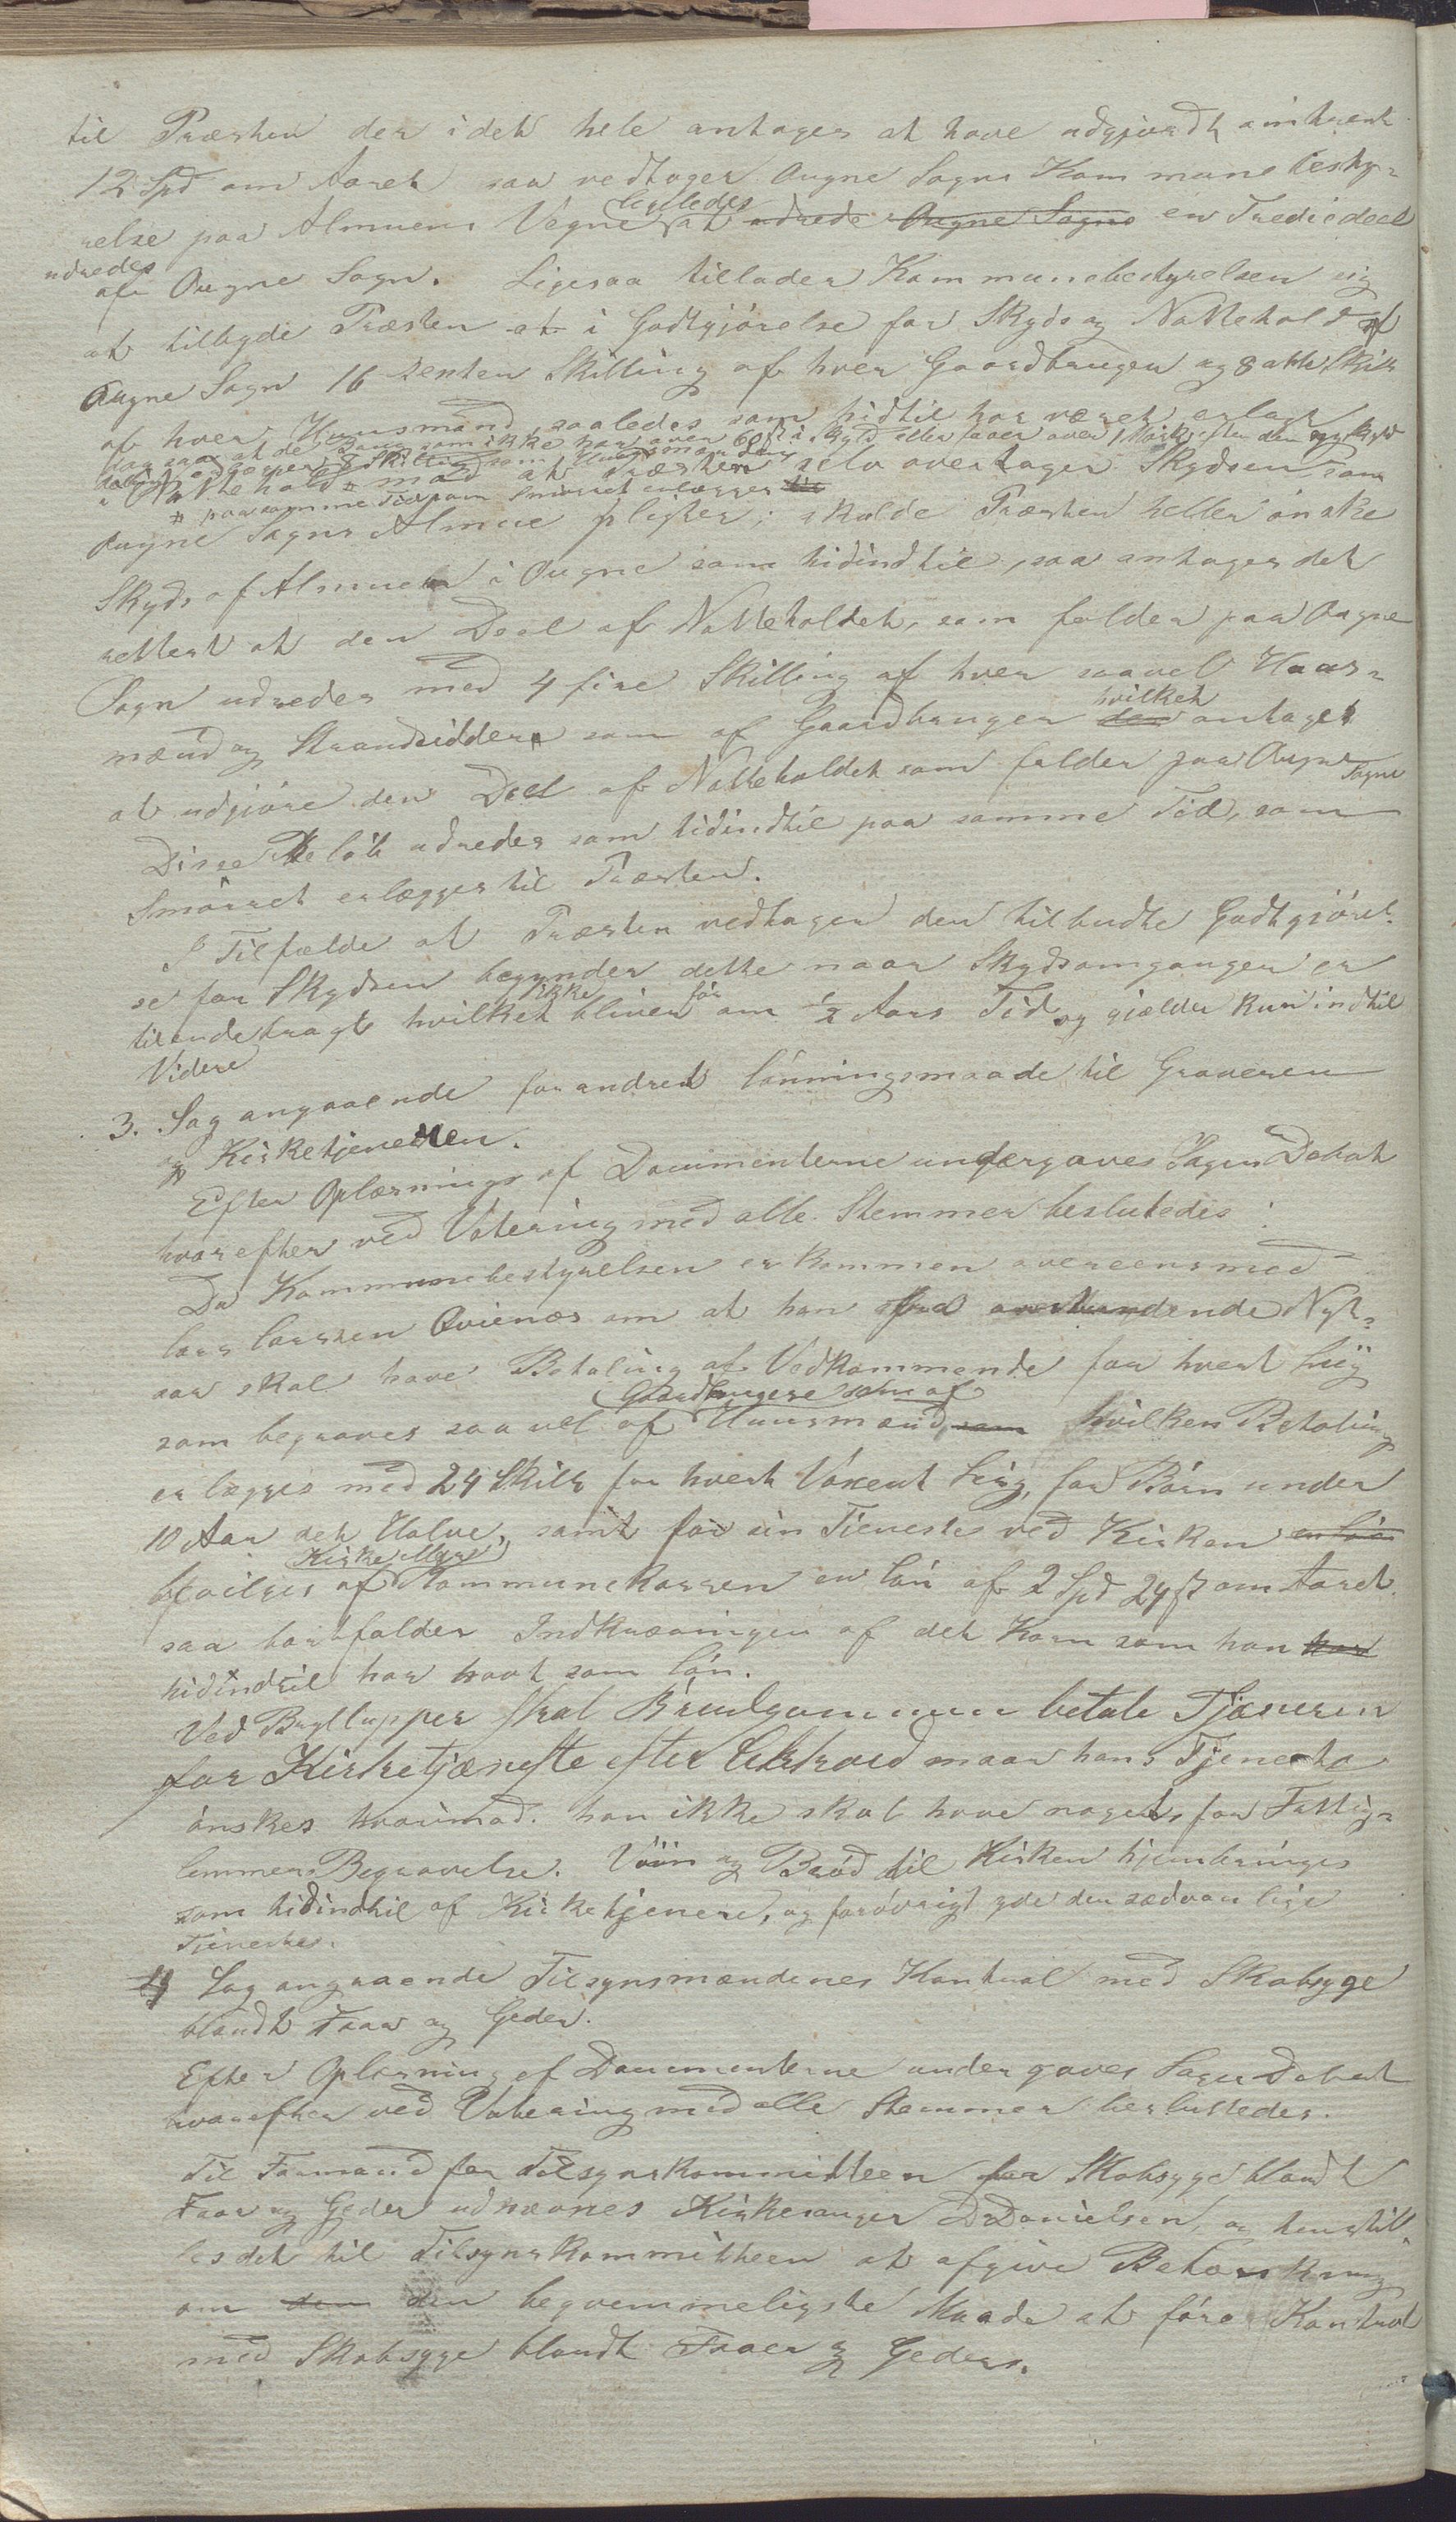 til Præsten der idet hele antages at have udgjordt omtrent
12 Spd om Aaret saa vedtager Augne Sogns Kommunebesty-
relse paa Almuens Vegne ligeledes at udrede Augne Sogns en Trediedeel
udredes
af Ougne Sogn. Ligesaa tillader Kommunebestyrelsen sig
at tilbyde Præsten at i Godtgjörelse for Skyds og Nattehold af
Augne Sogn 16 sexten Skilling af hver Gaardbruger og 8 atte Skill
af hver Huusmand, saaledes som hidtil har været erlagt
dog saa at de Brug som ikke har over 60 ß i Skyld eller over 1 Mark efter den ny Skyld
8 Skilling som Huusmænd
i Nattehold mod at Præsten selv overtager Skydsen som
# paa samme Tid som Smörret erlægges
Augne Sogns Almue pligter; skulde Præsten heller önske
Skyds af Almuen i Ougne som hidindtil, saa antages det
rettest at den Deel af Natteholdet, som falder paa Augne
Sogn udredes med 4 fire Skilling af hver saavel Huus-
mænd og Strandsiddere som af Gaardbruger den hvilket antages
at udgjöre den Deel af Natteholdet som falder paa Augne Sogn
Disse Belöb udredes som hidindtil paa samme Tid, som
Smörret erlægges til Præsten.
I Tilfælde at Præsten vedtager den tilbudte Godtgjörel-
se for Skydsen begynder dette naar Skydsomgangen er
tilendebragt hvilket ikke bliver för om ½ Aars Tid og gjælder kun indtil
Videre
3. Sag angaaende forandret lönningsmaade til Graveren
og Kirketjeneren.
Efter Oplæsnings af Documenterne undergaves Sagen Debat
hvorefter ved Votering med alle Stemmer besluttedes:
Da Kommunebestyrelsen er kommen overeens med
Lars Larsen Qvienæs om at han fra anstundende Nyt-
aar skal have Betaling af Vedkommende for hvert Liig
som begraves saavel af Gaardbrugere som af Huusmænd, som hvilken Betaling
erlægges med 24 Skill for hvert Voxent Liig, for Börn under
10 Aar det Halve, samt for sin Tieneste ved Kirken en Lön
bevilges af Kirke Kommunekassen en lön af 2 Spd 24 ß om Aaret.
saa bortfalder Indkrævningen af det Korn som han har
hidindtil har havt som lön.
Ved Bryllupper skal Brudgommen betale Tjeneren
for Kirketjæneste efter Akkord naar hans Tjeneste
önskes hvorimod han ikke skal have noget for Fattig-
lemmers Begravelse. Viin og Bröd til Kirken hjembringes
som hidindtil af Kirketjenere, og forövrigt yde den sædvanlige
Tieneste.
4 Sag angaaende Tilsynsmændenes Kontrol med Skabsyge
blandt Faar og Geder.
Efter Oplæsning af Documenterne undergaves Sagen Debat
hvorefter ved Votering med alle Stemmer besluttedes.
Til Formand for Tilsynskommitteen for Skabsyge blandt
Faar og Geder udnævnes Kirkesanger D Danielsen, og henstil-
les det til Tilsynskommitteen at afgive Betænkning
om dem den beqvemmeligste Maade at före Kontrol
med Skabsyge blandt Faaer og Geder.